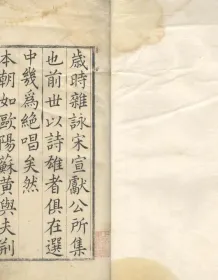 歲時雜詠宋宣獻公所集
也前世以詩雄者俱在選
中幾爲絶唱矣然
本朝如歐陽蘇黃與夫荆